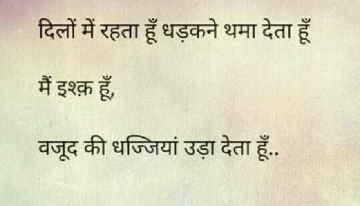 दिलों में रहता हूँ धड़कने थमा देता हूँ
मैं इश्क़ हूँ,
वजूद की धज्जियां उड़ा देता हूँ..